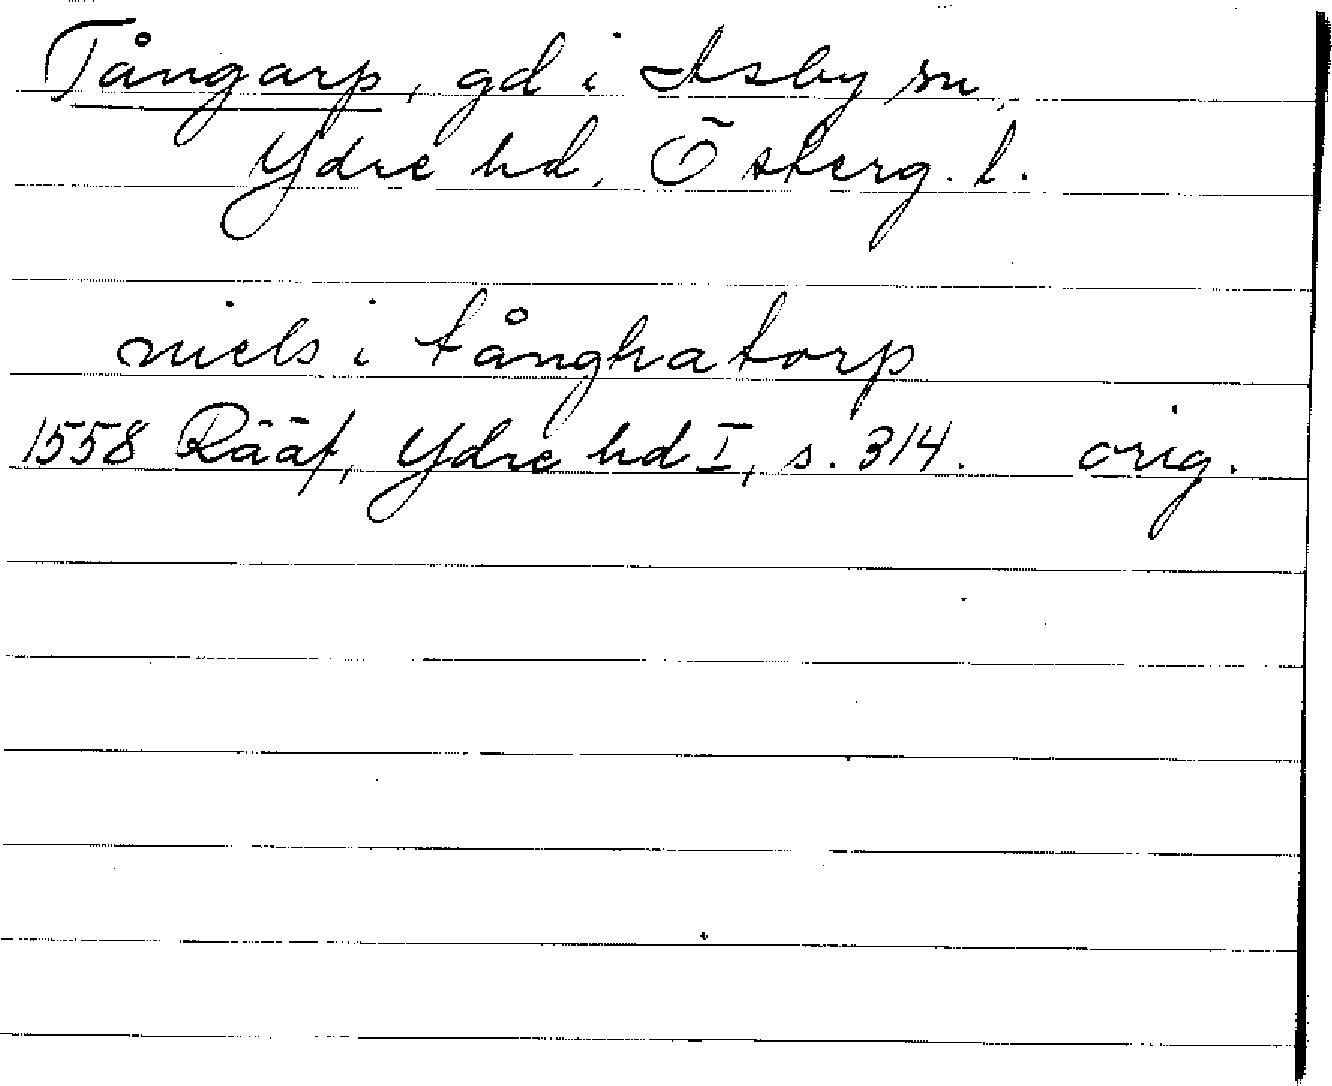 Tångarp, gd i Asby sn,
Ydre hd, Österg. l.
niels i tångha torp
1558 Rääf, Ydre hd I, s. 314. orig.